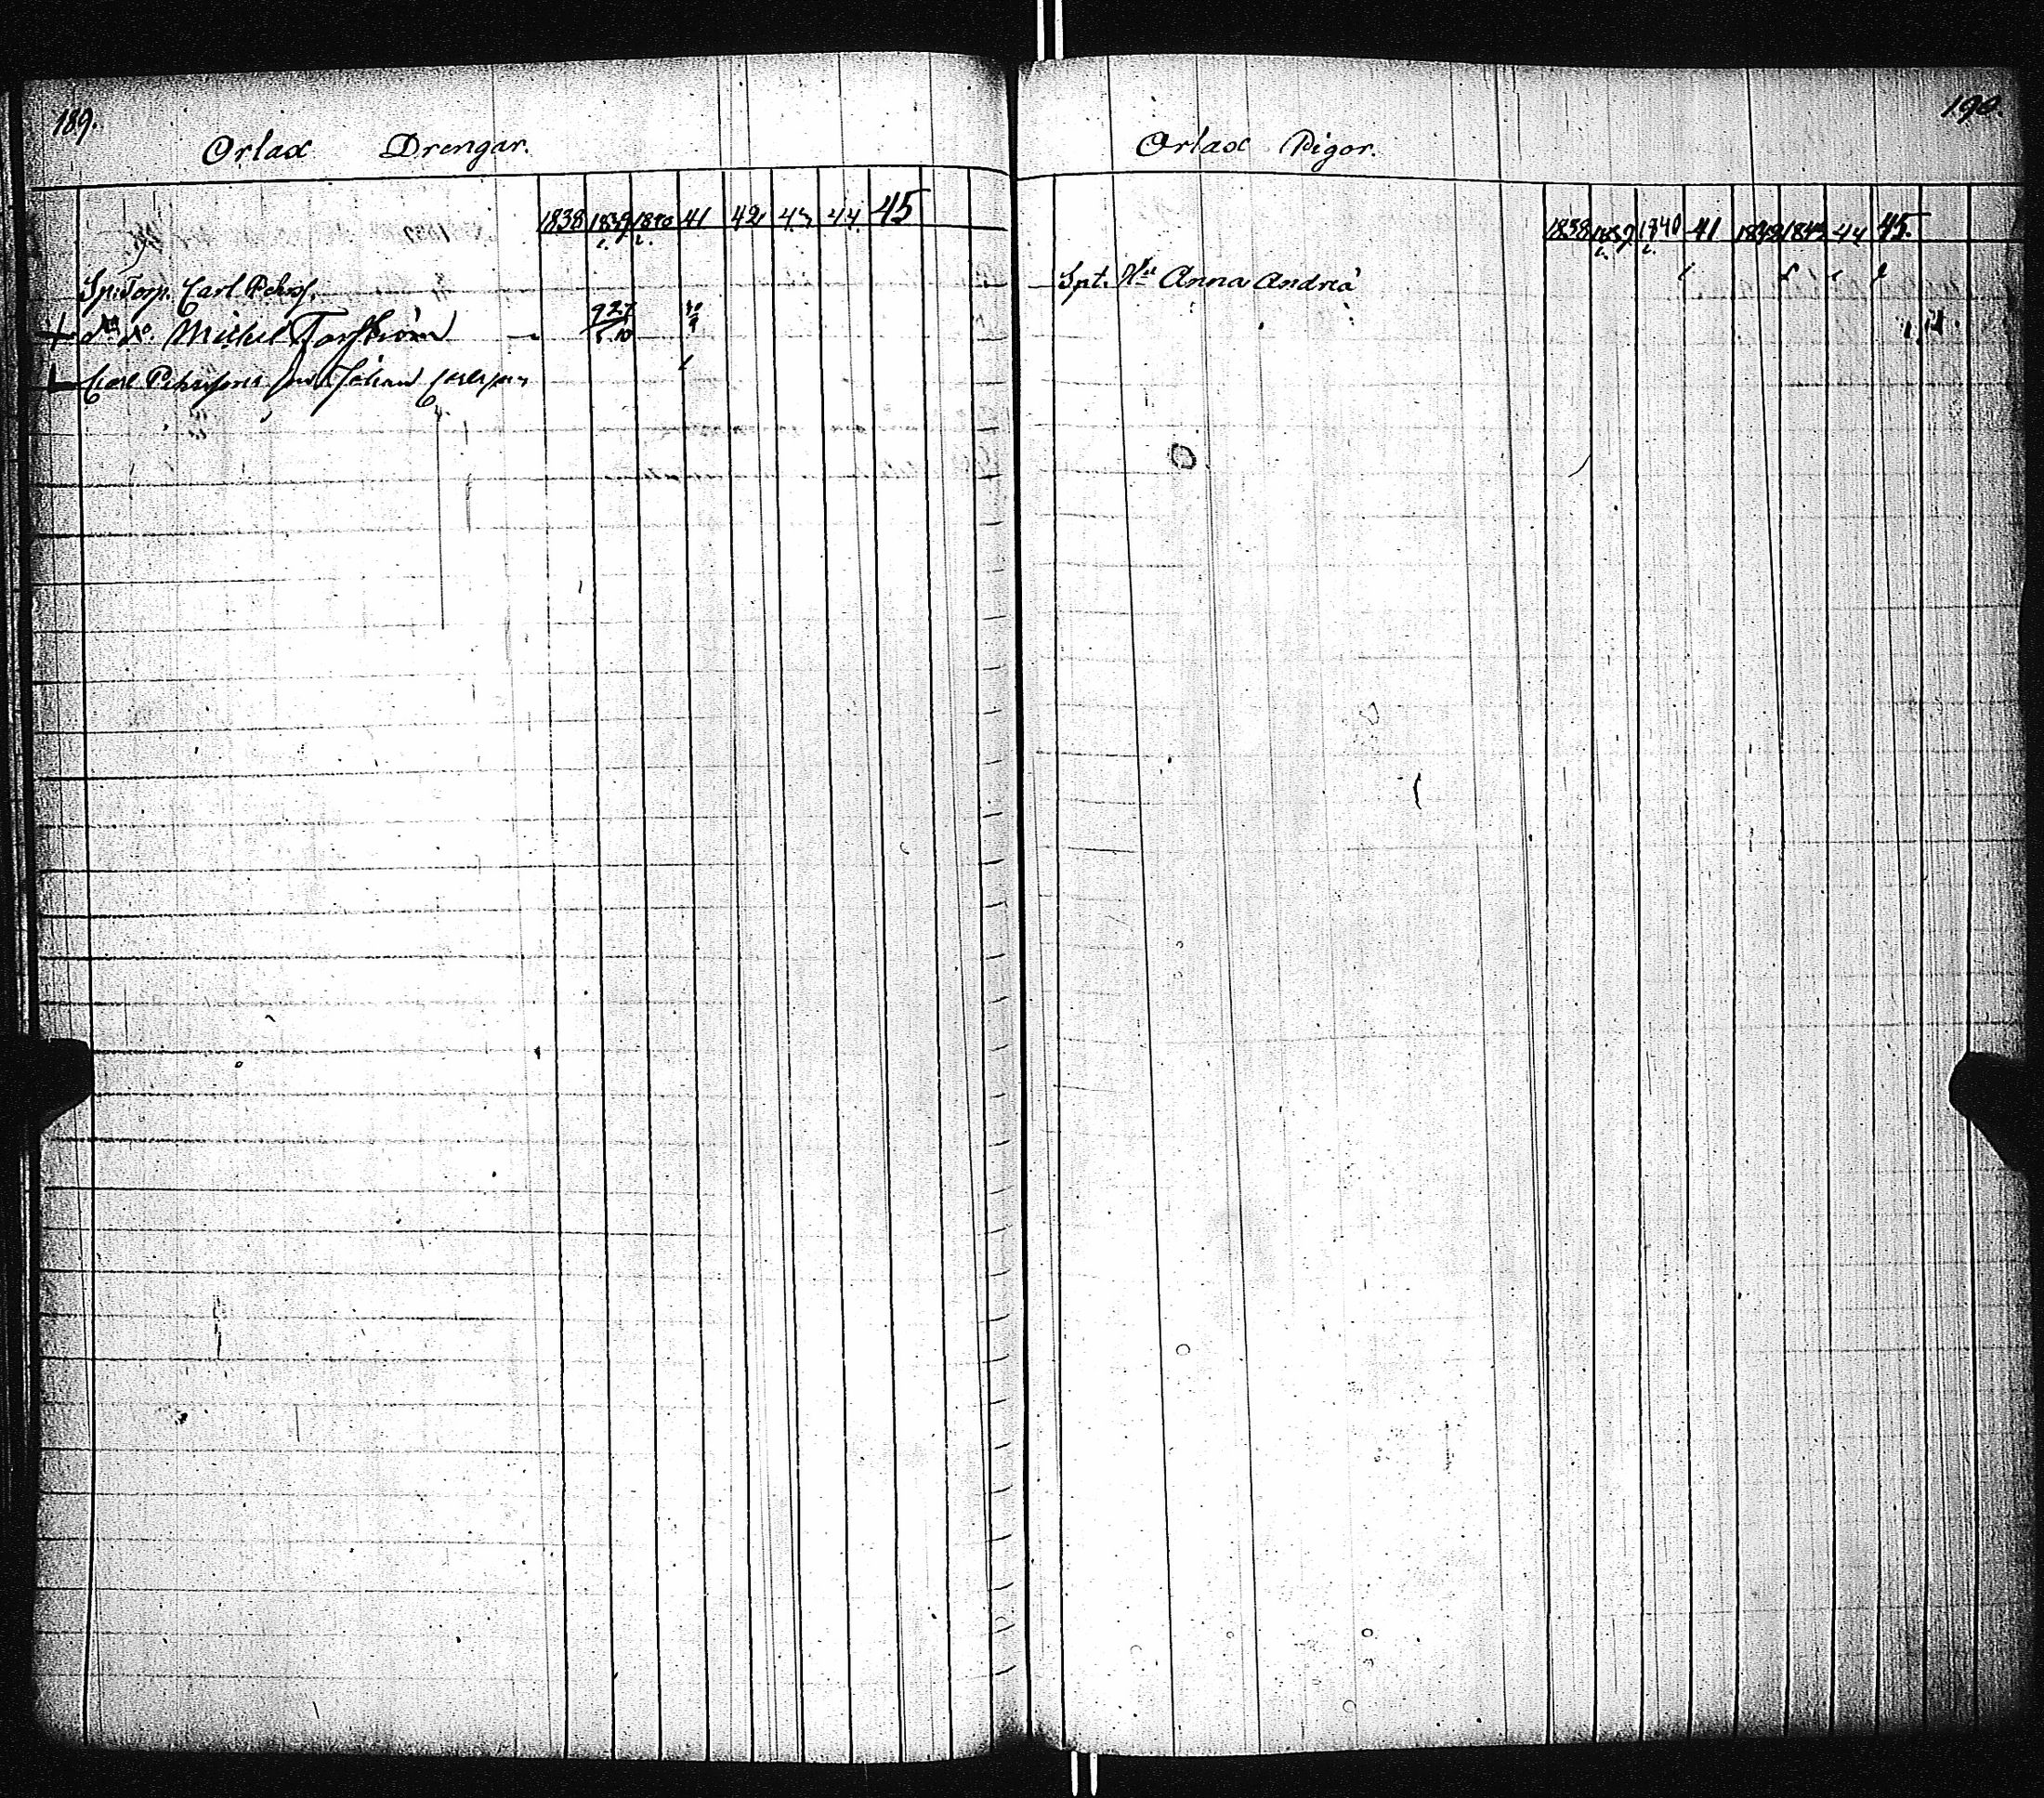 189.
Orlax Drengar.
1838 1839 1840 41 42 43 44 45
Sp. Torp. Carl Pehrs.
D:o D:o Michel Forsström 9 27 / 5 10
Carl Pehrssons son Johan Carlsson
190.
Orlax Pigor.
1838 1839 1840 41 1842 1843 44 45.
Spt. H:u Anna Andrea